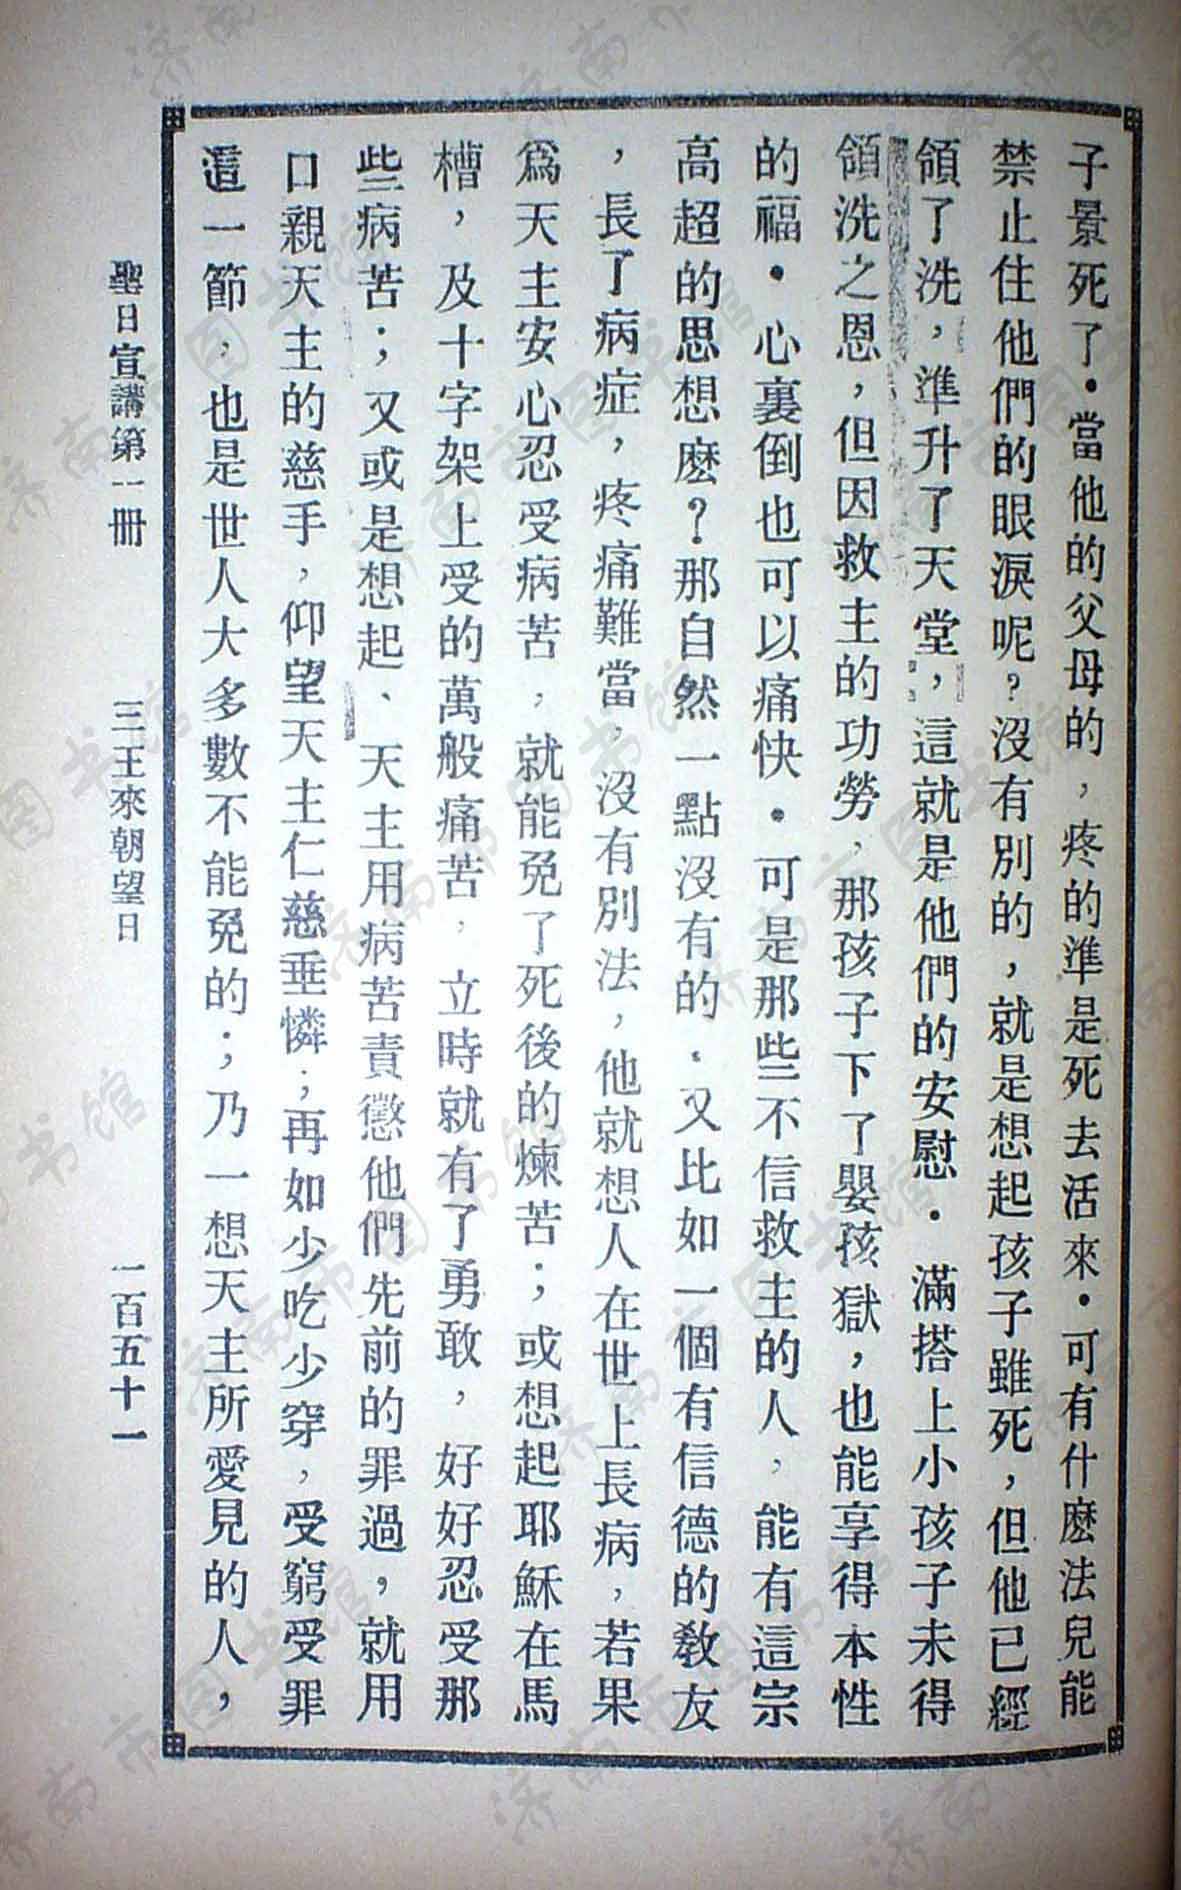 子景死了・當他的父母的，疼的準是死去活來・可有什麽法兒能
禁止住他們的眼淚呢？沒有別的，就是想起孩子雖死，但他已經
領了洗，準升了天堂，這就是他們的安慰・滿搭上小孩子未得
領洗之恩，但因救主的功勞，那孩子下了嬰孩獄，也能享得本性
的福・心裏倒也可以痛快・可是那些不信救主的人，能有這宗
高超的思想麽？那自然一點沒有的・又比如一個有信德的敎友
，長了病症，疼痛難當，沒有別法，他就想人在世上長病，若果
爲天主安心忍受病苦，就能免了死後的煉苦；或想起耶穌在馬
槽，及十字架上受的萬般痛苦，立時就有了勇敢，好好忍受那
些病苦；又或是想起、天主用病苦責懲他們先前的罪過，就用
口親天主的慈手，仰望天主仁慈垂憐；再如少吃少穿，受窮受罪
這一節，也是世人大多數不能免的；乃一想天主所愛見的人，
聖日宣講第一冊　三王來朝望日　一百五十一
济南市图书馆